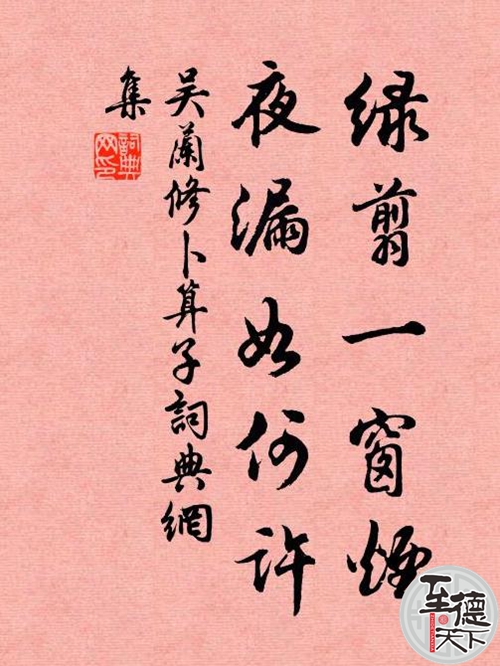 绿剪一窗煙
夜漏如何许
吴蘭修卜算子詞典網
集
詞典网印
至德天下